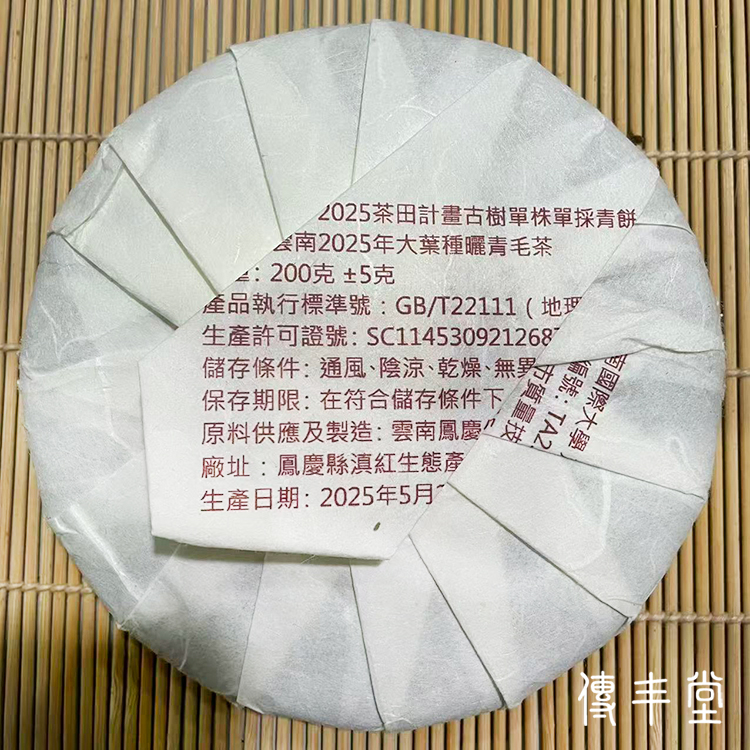 2025茶田計畫古樹單株單採青餅
雲南2025年大葉種曬青毛茶
: 200克 ±5克
產品執行標準號 : GB/T22111 ( 地理
生產許可證號: SC1145309212687
儲存條件: 通風、陰涼、乾燥、無異
保存期限: 在符合儲存條件下
原料供應及製造: 雲南鳳慶
廠址 : 鳳慶縣滇紅生態產
生產日期: 2025年5月
國際大學
編號: TA2
市質量技
傳丰堂